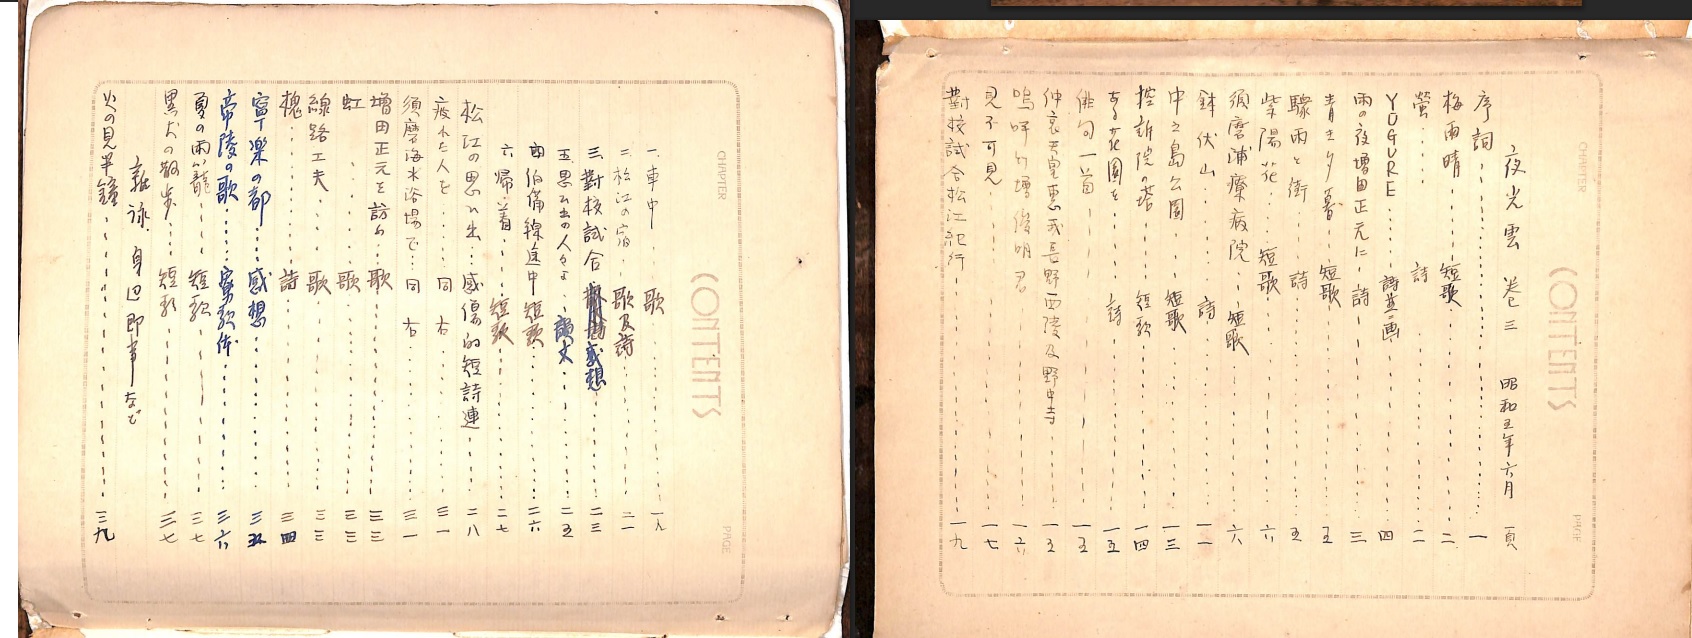 CONTENTS
CHAPTER
PAGE
夜光雲 巻三 昭和五年六月 頁
序詞 一
梅雨晴 短歌 二
螢 詩 二
YŪGURE 詩並画 四
雨の夜増田正元に 詩 三
青き夕暮 短歌 五
驟雨と街 詩 五
紫陽花 短歌 六
須磨浦療病院 短歌 六
鉢伏山 詩 一一
中之島公園 短歌 一三
控訴院の塔 短歌 一四
詩 一五
俳句一首 一五
仲哀天皇惠我長野西陵及野中寺 一五
嗚呼 増俊明君 一六
見不可見 一七
對校試合松江紀行 一九
CONTENTS
CHAPTER
PAGE
一、車中 歌 一九
二、松江の宿 歌及詩 二一
三、對校試合 感想 二三
五、思ひ出の人々よ 二五
四、伯備線途中 短歌 二六
六、帰着 短歌 二七
松江の思ひ出 感傷的短詩連 二八
疲れた人を 同右 三一
須磨海水浴場で 同右 三一
増田正元を訪ふ 歌 三三
虹 歌 三三
線路工夫 歌 三三
槐 詩 三四
寧楽の部 感想 三五
帝陵の歌 寮歌体 三六
夏の雨 短歌 三七
黒犬の散歩 短歌 三七
雑詠 身辺即事など
火の見半鐘 三九